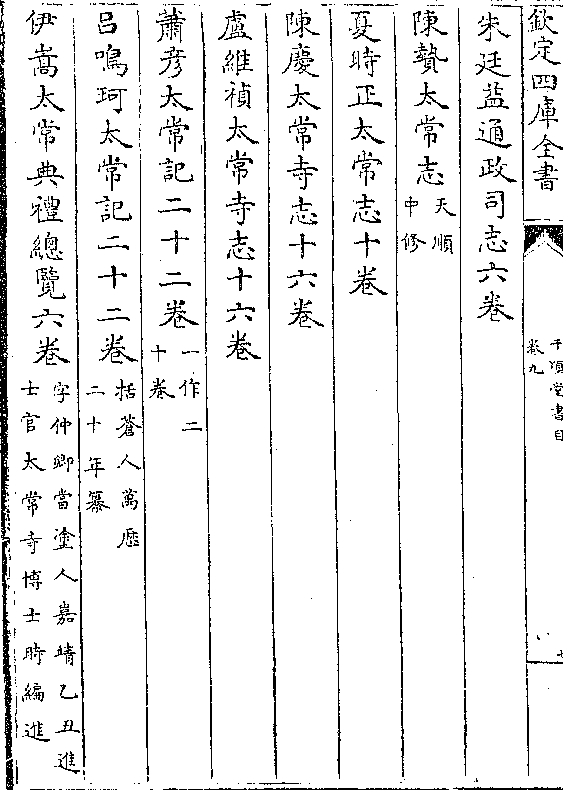 欽定四庫全書
千頃堂書目
卷九
朱廷益通政司志六卷
陳贄太常志天順
中修
夏時正太常志十卷
陳慶太常寺志十六卷
盧維禎太常寺志十六卷
蕭彥太常記二十二卷一作二
十卷
呂鳴珂太常記二十二卷括蒼人萬厯
二十年纂
伊嵩太常典禮總覽六卷字仲卿當塗人嘉靖乙丑進
士官太常寺博士時編進